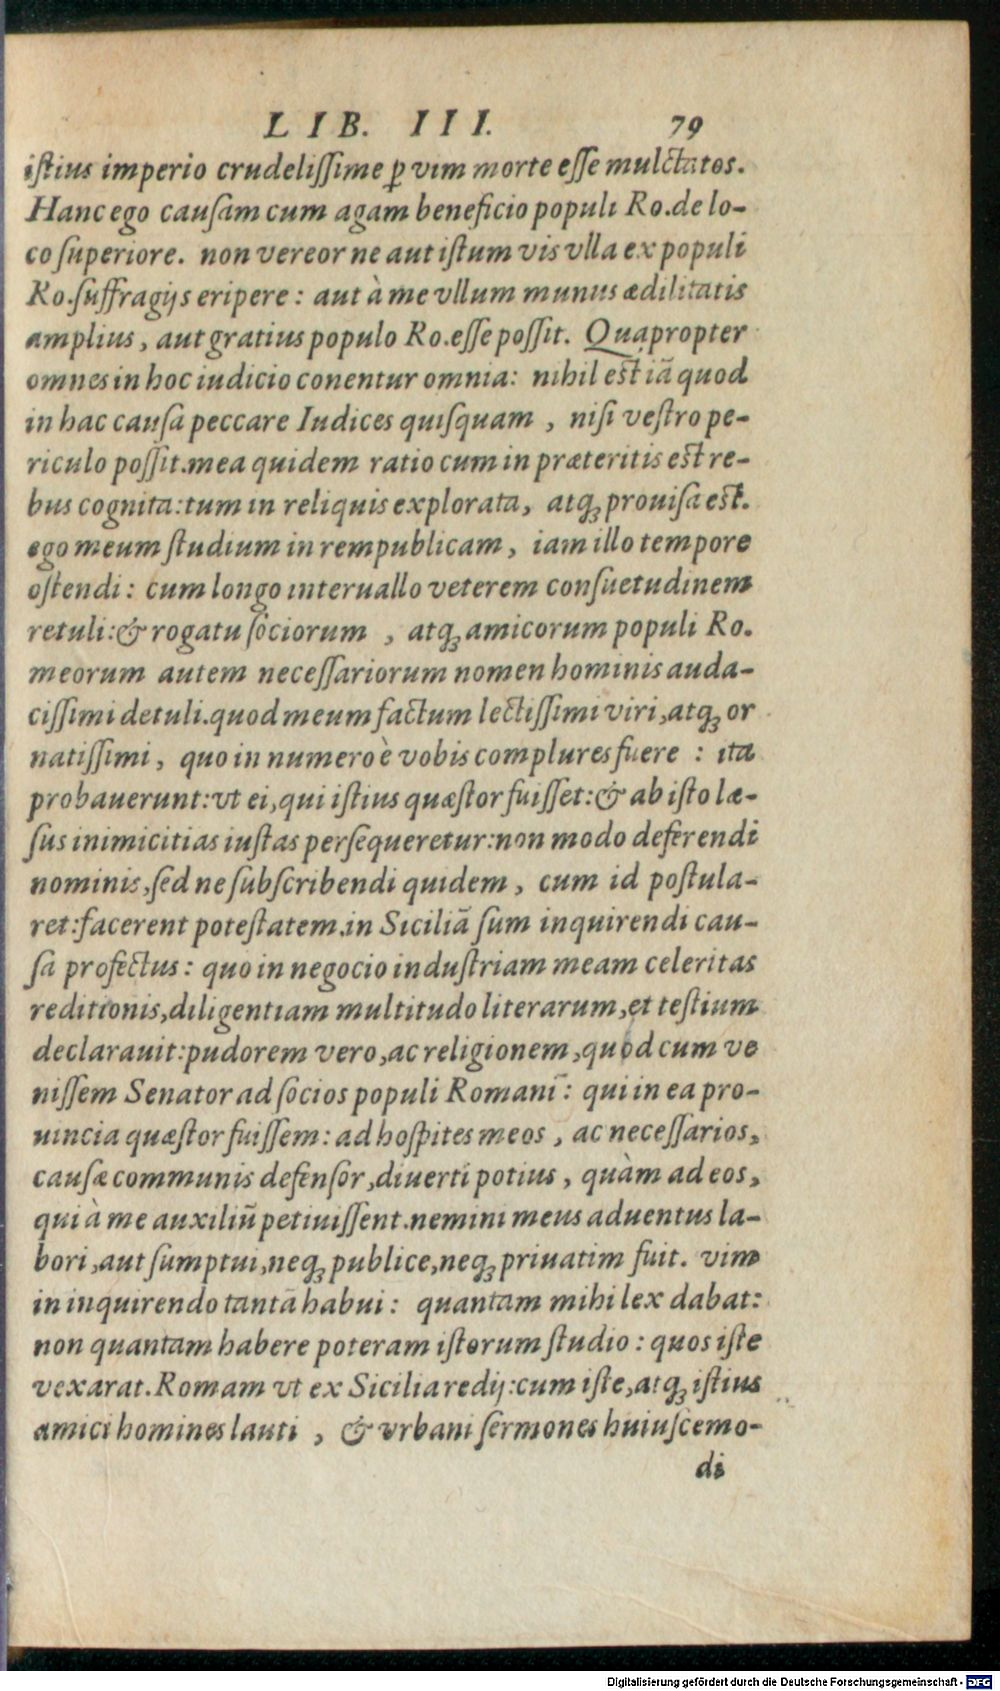 LIB. III. 79
iſtius imperio crudeliſſime ꝑ vim morte eſſe mulctatos.
Hanc ego cauſam cum agam beneficio populi Ro.de lo-
co ſuperiore. non vereor ne aut iſtum vis vlla ex populi
Ro.ſuffragijs eripere: aut à me vllum munus ædilitatis
amplius, aut gratius populo Ro.eſſe poſſit. Quapropter
omnes in hoc iudicio conentur omnia: nihil eſt iã quod
in hac cauſa peccare Iudices quiſquam , niſi veſtro pe-
riculo poſſit.mea quidem ratio cum in præteritis eſt re-
bus cognita:tum in reliquis explorata, atq; prouiſa eſt.
ego meum ſtudium in rempublicam, iam illo tempore
oſtendi: cum longo interuallo veterem conſuetudinem
retuli:& rogatu ſociorum , atq; amicorum populi Ro.
meorum autem neceſſariorum nomen hominis auda-
ciſſimi detuli.quod meum factum lectiſſimi viri,atq; or
natiſſimi, quo in numero è vobis complures fuere : ita
probauerunt:vt ei,qui iſtius quæſtor fuiſſet:& ab iſto læ-
ſus inimicitias iuſtas perſequeretur:non modo deferendi
nominis,ſed ne ſubſcribendi quidem, cum id poſtula-
ret:facerent poteſtatem.in Siciliã ſum inquirendi cau-
ſa profectus: quo in negocio induſtriam meam celeritas
reditionis,diligentiam multitudo literarum,et teſtium
declarauit:pudorem vero,ac religionem,quod cum ve
niſſem Senator ad ſocios populi Romani: qui in ea pro-
uincia quæſtor fuiſſem: ad hoſpites meos , ac neceſſarios,
cauſæ communis defenſor,diuerti potius, quàm ad eos,
qui à me auxiliũ petiuiſſent.nemini meus aduentus la-
bori,aut ſumptui,neq; publice,neq; priuatim fuit. vim
in inquirendo tantã habui: quantam mihi lex dabat:
non quantam habere poteram iſtorum ſtudio: quos iſte
vexarat.Romam vt ex Sicilia redij:cum iſte,atq; iſtius
amici homines lauti , & vrbani ſermones huiuſcemo-
di
Digitalisierung gefördert durch die Deutsche Forschungsgemeinschaft - DFG